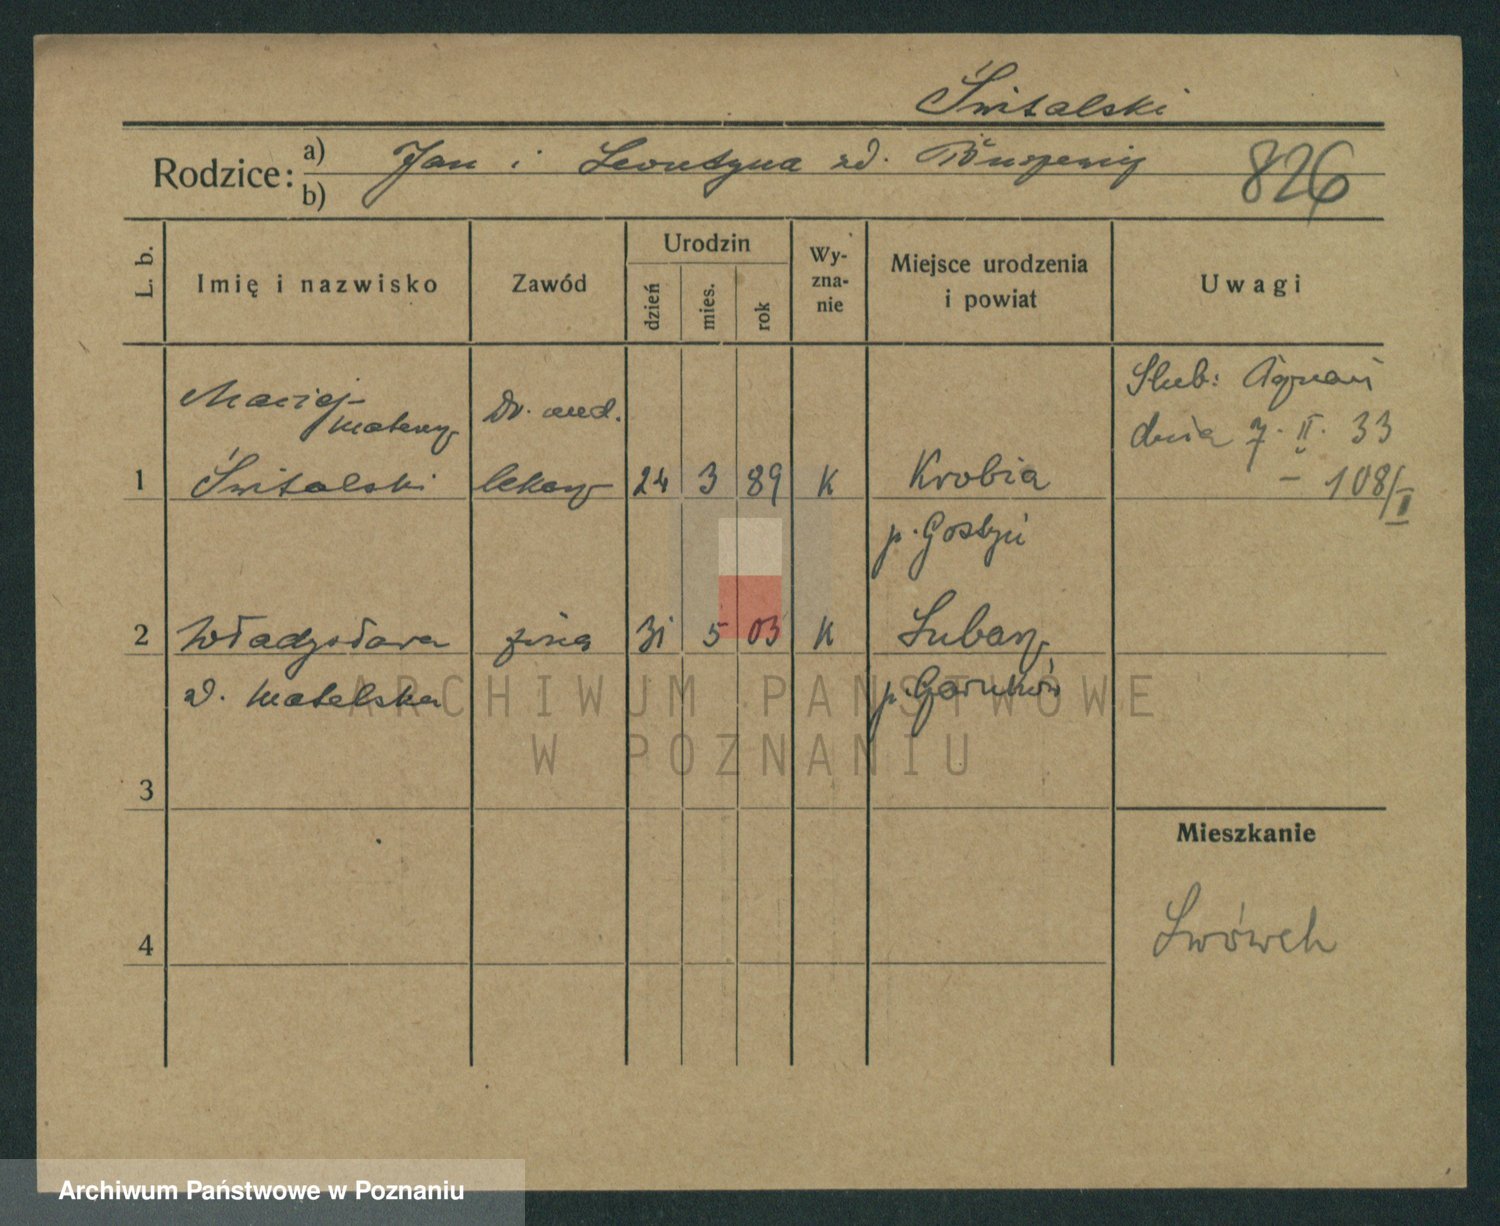 Świtalski
Rodzice: a) Jan i Leontyna zd.
b)
826
L. b.
Imię i nazwisko
Zawód
Urodzin
dzień
mies.
rok
Wy-
zna-
nie
Miejsce urodzenia
i powiat
Uwagi
Maciej- Dr. med. Ślub: Poznań
Mateusz dnia 7. II. 33
1 Świtalski lekarz 24 3 89 K Krobia – 108/II
p. Gostyń
2 Władysława żona 31 5 03 K Lubasz
zd. Matelska p. Czarnków
3
Mieszkanie
4 Lwówek
ARCHIWUM PAŃSTWOWE
W POZNANIU
Archiwum Państwowe w Poznaniu